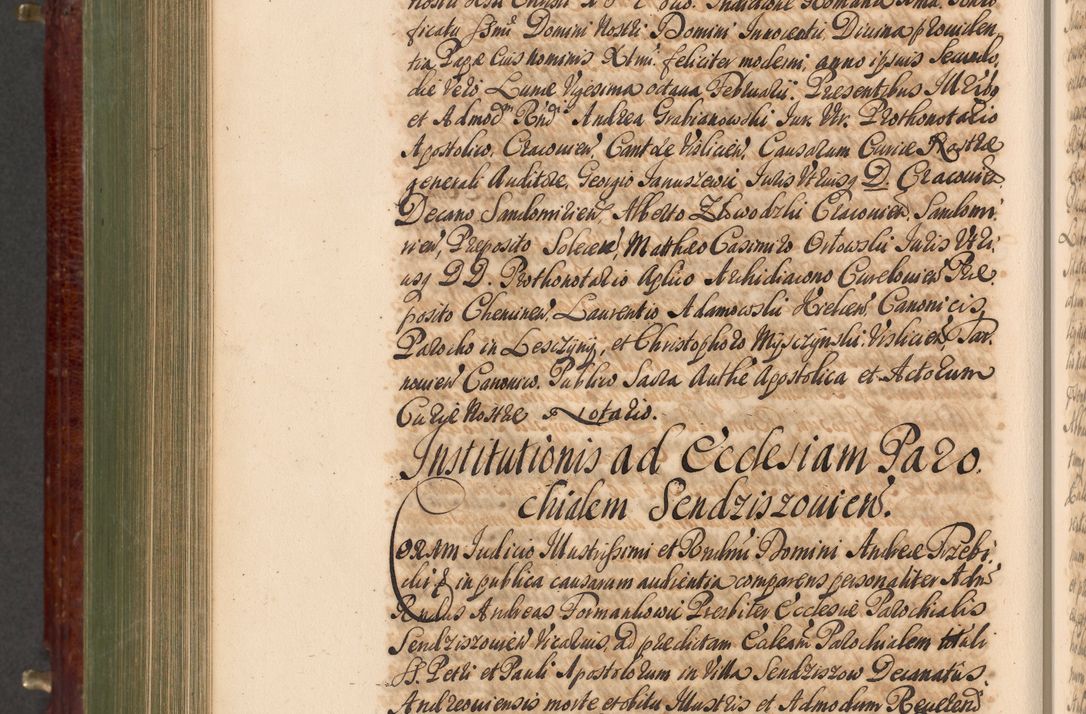 ficatu SSmi Domini Nostri Domini Innocentii Divina providen
tia Papæ Eius nominis Xtmi feliciter moderni anno ipsius Secundo,
die vero Lunæ Vigesima octava Februarii, Presentibus Illribo
et Admod Rnd Andrea Grabianowski Iur. Vtr. Prothonotario
Apostolico, Cracovien, Cantore Visliceń, Causarum Curiæ Nostræ
generali Auditore, Georgio Januszewic Juris Vtriusq D. Cracovień
Decano Sandomirień, Alberto Zbwodzki Cracovień, Sandomi
rień, Preposito Soleceń, Matthæo Casimiro Orlowski Juris Vtri
usq DD. Prothonotario Aplico Archidiacono Curelovień Præ
posito Chemineń, Laurentio Adamowski Kielceń, Canonicis,
Parocho in Lesczyny, et Christophoro Mysczynski Visliceń, Tar
novień Canonico, Publico Sacra Authe Appstolica et Actorum
Curiæ Nostræ Notario.
Institutionis ad Ecclesiam Paro
chialem Sendziszovień.
CORAM Judicio Illustrissimi et Rndmi Domini Andreæ Trzebi
cki & in publica causarum audientia comparens personaliter Adm
Rndus Andreas Formankowic Presbiter Ecclesiæ Parochialis
Sendziszovień Vicarius, ad predictam Ecleam Parochialem tituli
SS. Petri et Pauli Apostolorum in Villa Sendziszow Decanatus
Andreoviensis morte et obitu Illustris et Admodum Reverend